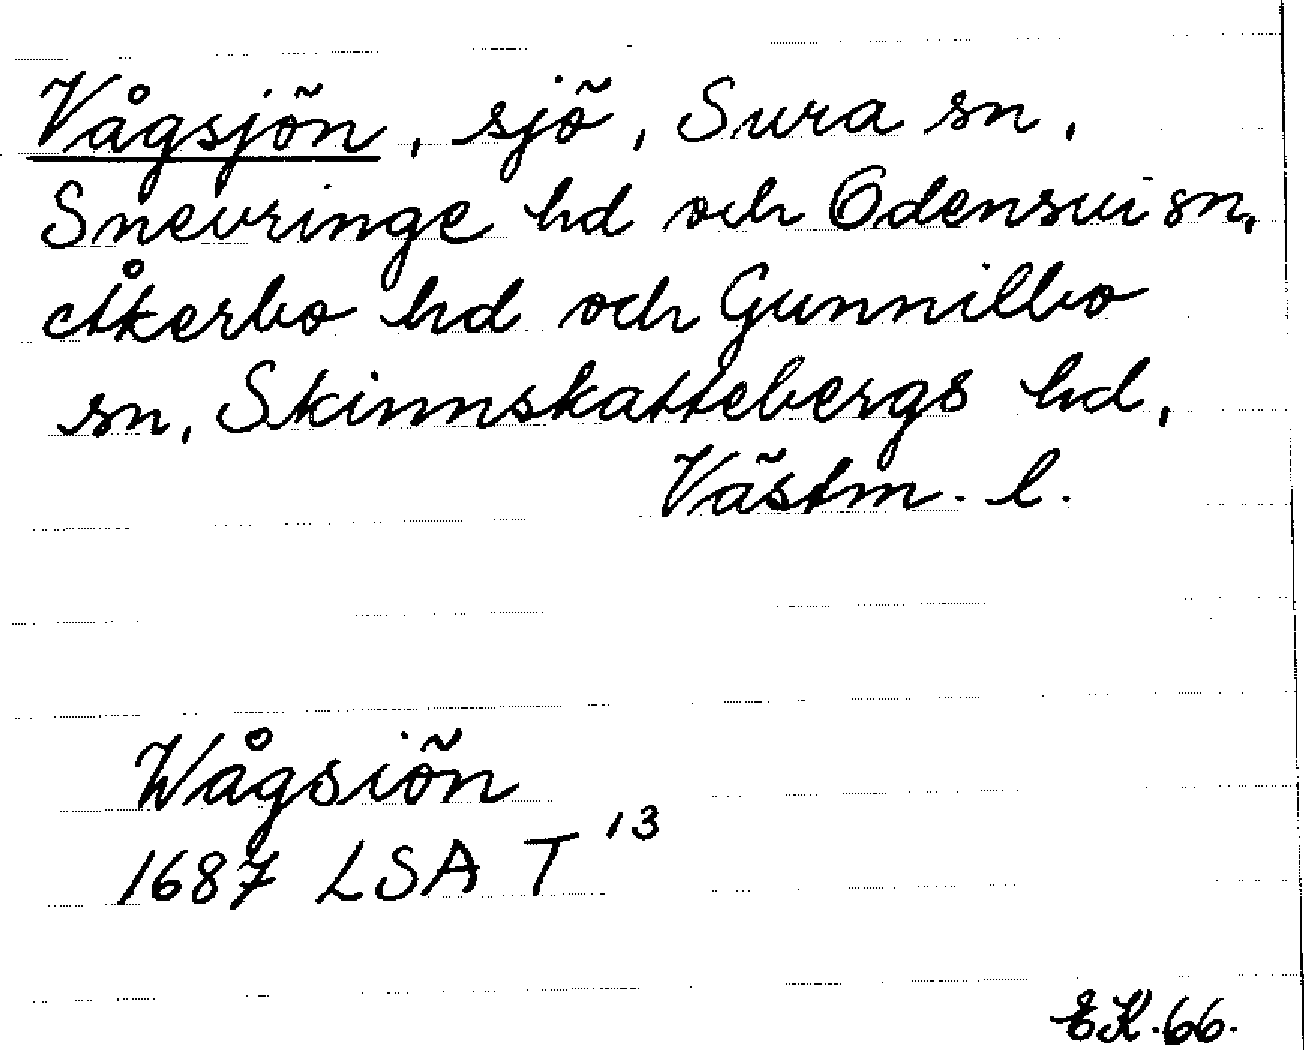 Vågsjön, sjö, Sura sn,
Snevringe hd och Odensvi sn,
Åkerbo hd och Gunnilbo
sn, Skinnskattebergs hd,
Västm. l.
Wågsiön
1687 LSA T 13
EK.66.